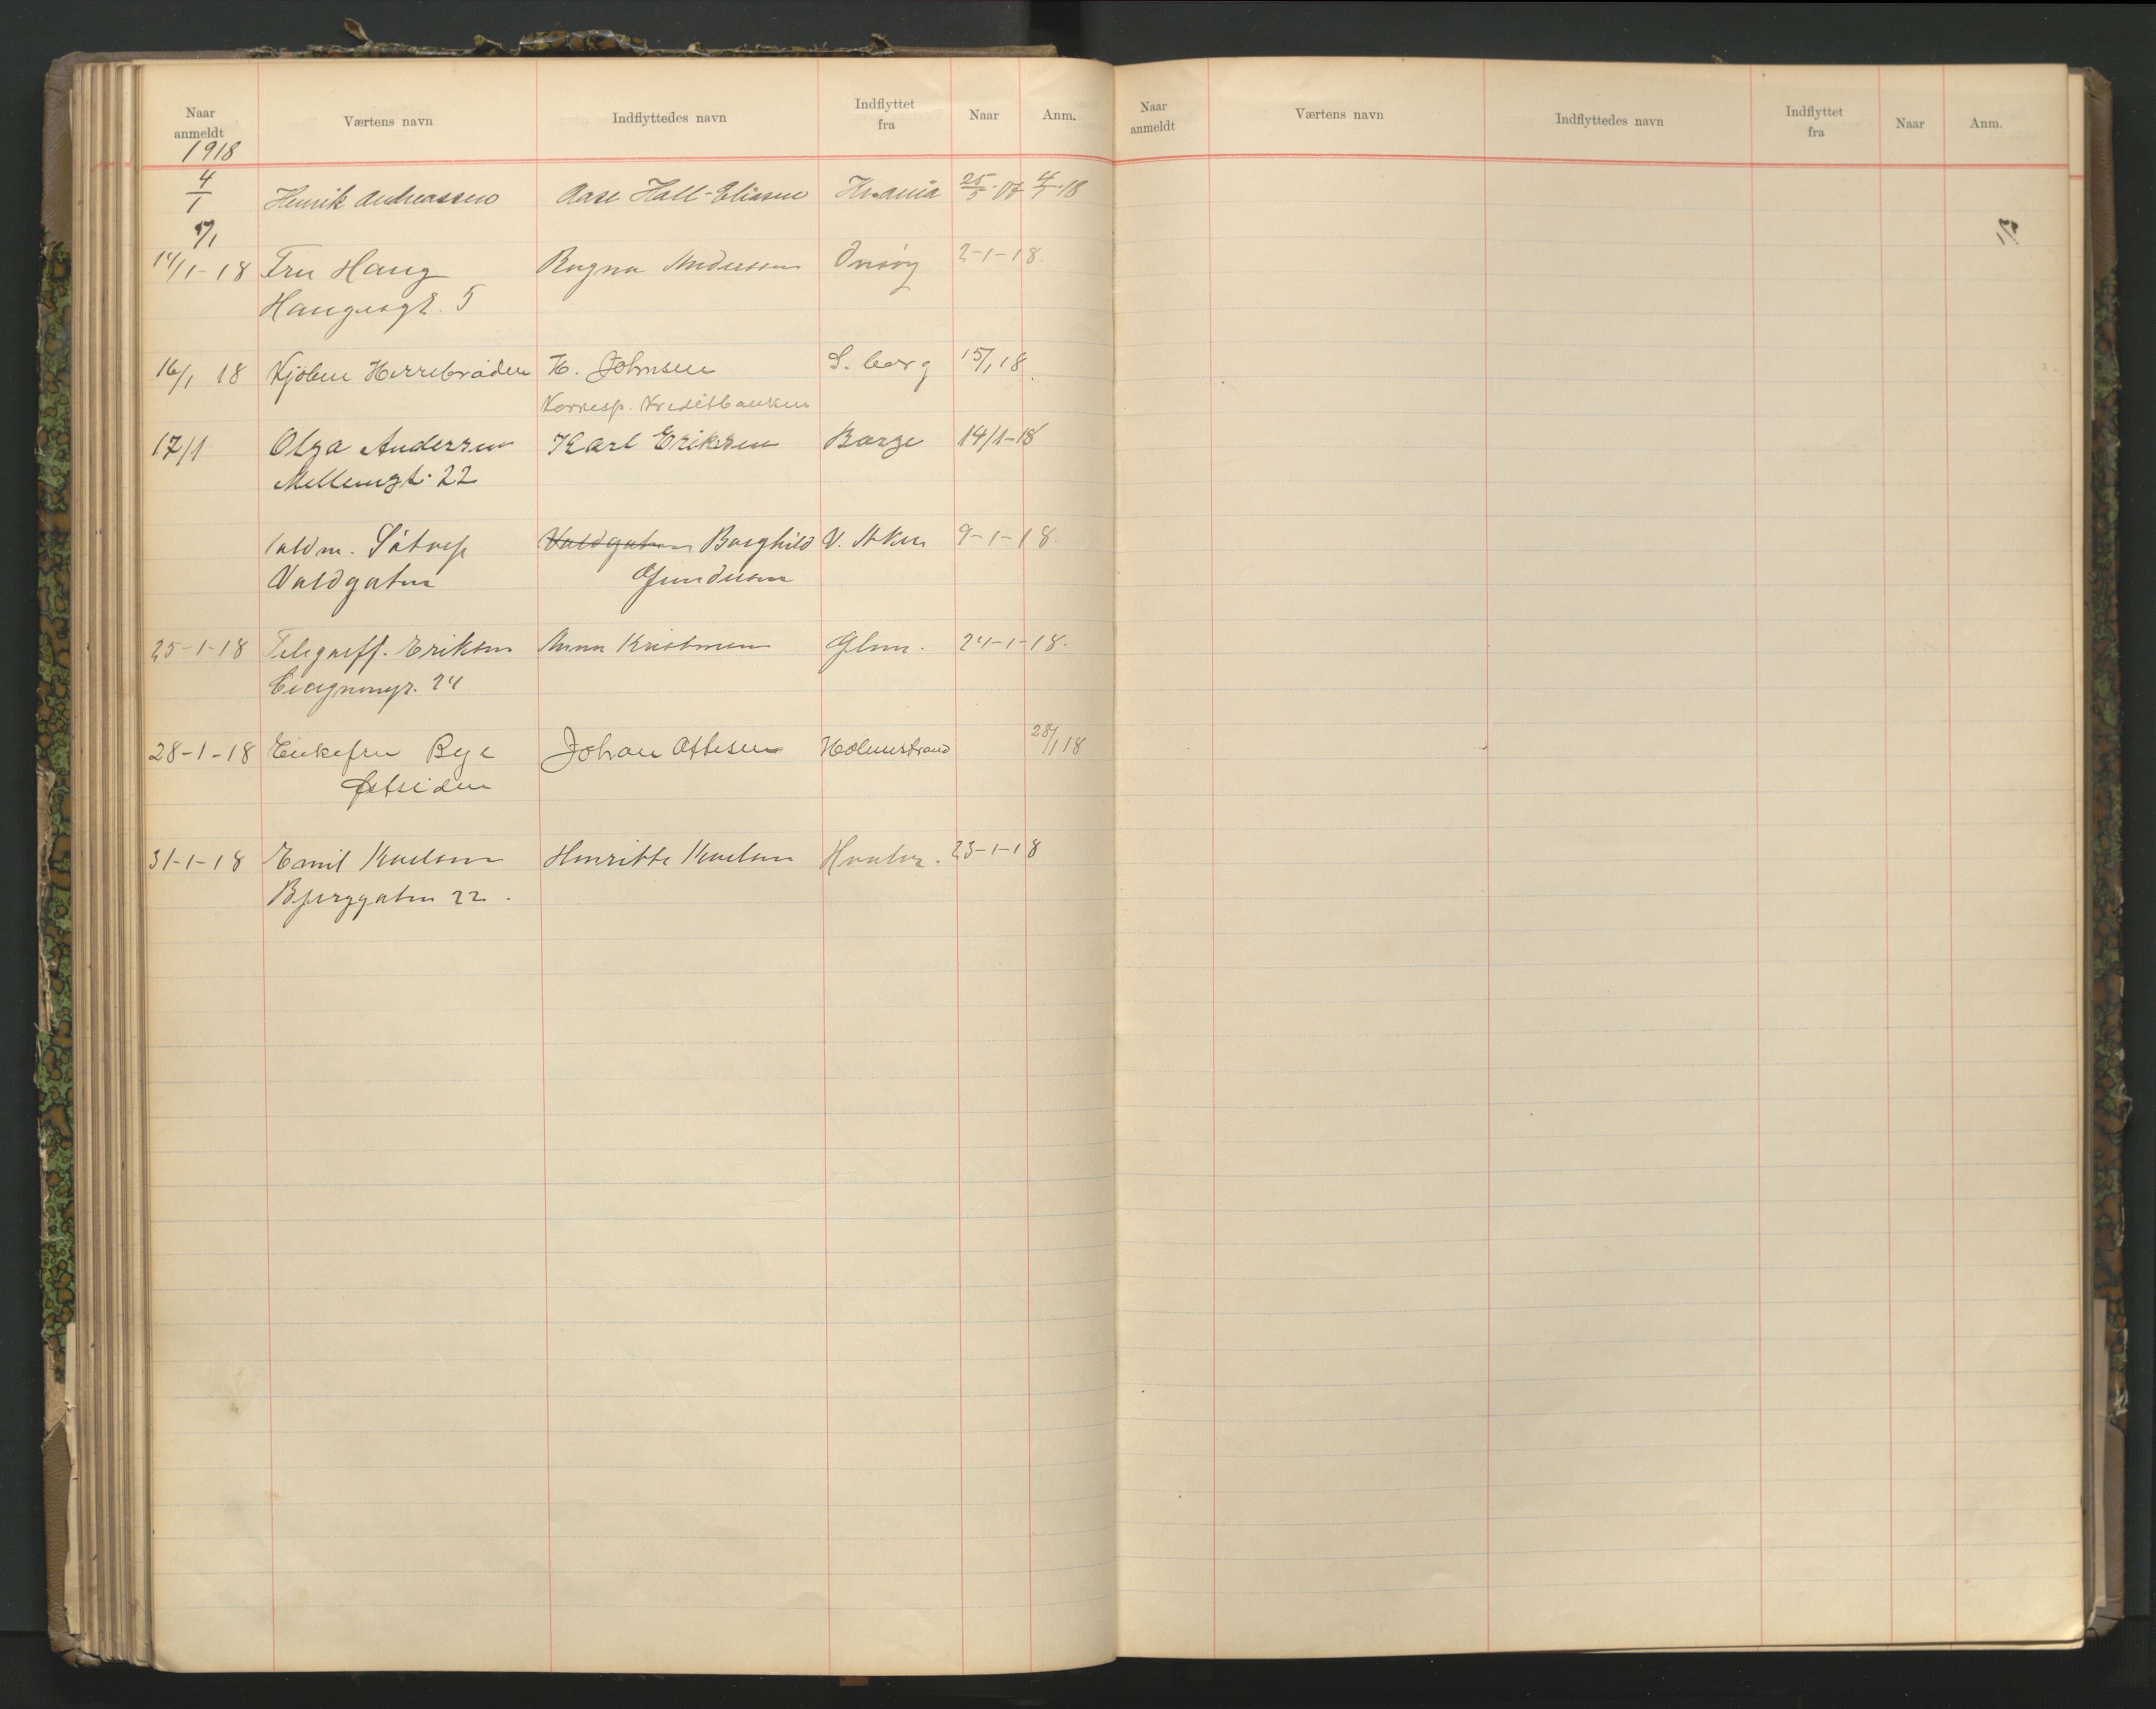 Naar anmeldt Værtens navn Indflyttedes navn Indflyttet fra Naar Anm.
1918
4/1 Henrik Andreassen Aase Hall-Eliasen Kr.ania 25/5-07 4/1-18
5/1
14/1-18 Fru Haug Ragna Andersen Onsøy 2-1-18.
Haugesgt. 5
16/1 18 Kjøben Herrebrøden H. Johnsen S.borg 15/1 18
Korresp. Kreditbanken
17/1 Olga Andersen Karl Eriksen Borge 14/1-18
Mellemgt. 22
Valdm. Såtorp Valdgaten Borghild V. Aker 9-1-18.
Valdgaten Gundersen
25-1-18 Telegraff. Eriksen Anna Kristensen Glem. 24-1-18.
24
28-1-18 Enkefru Bye Johan Ottesen Holmestrand 28/1 18
Østsiden
31-1-18 Emil Karlsen Henritte Karlsen Hvaler. 23-1-18
Bjerggaten 22.
Naar anmeldt Værtens navn Indflyttedes navn Indflyttet fra Naar Anm.